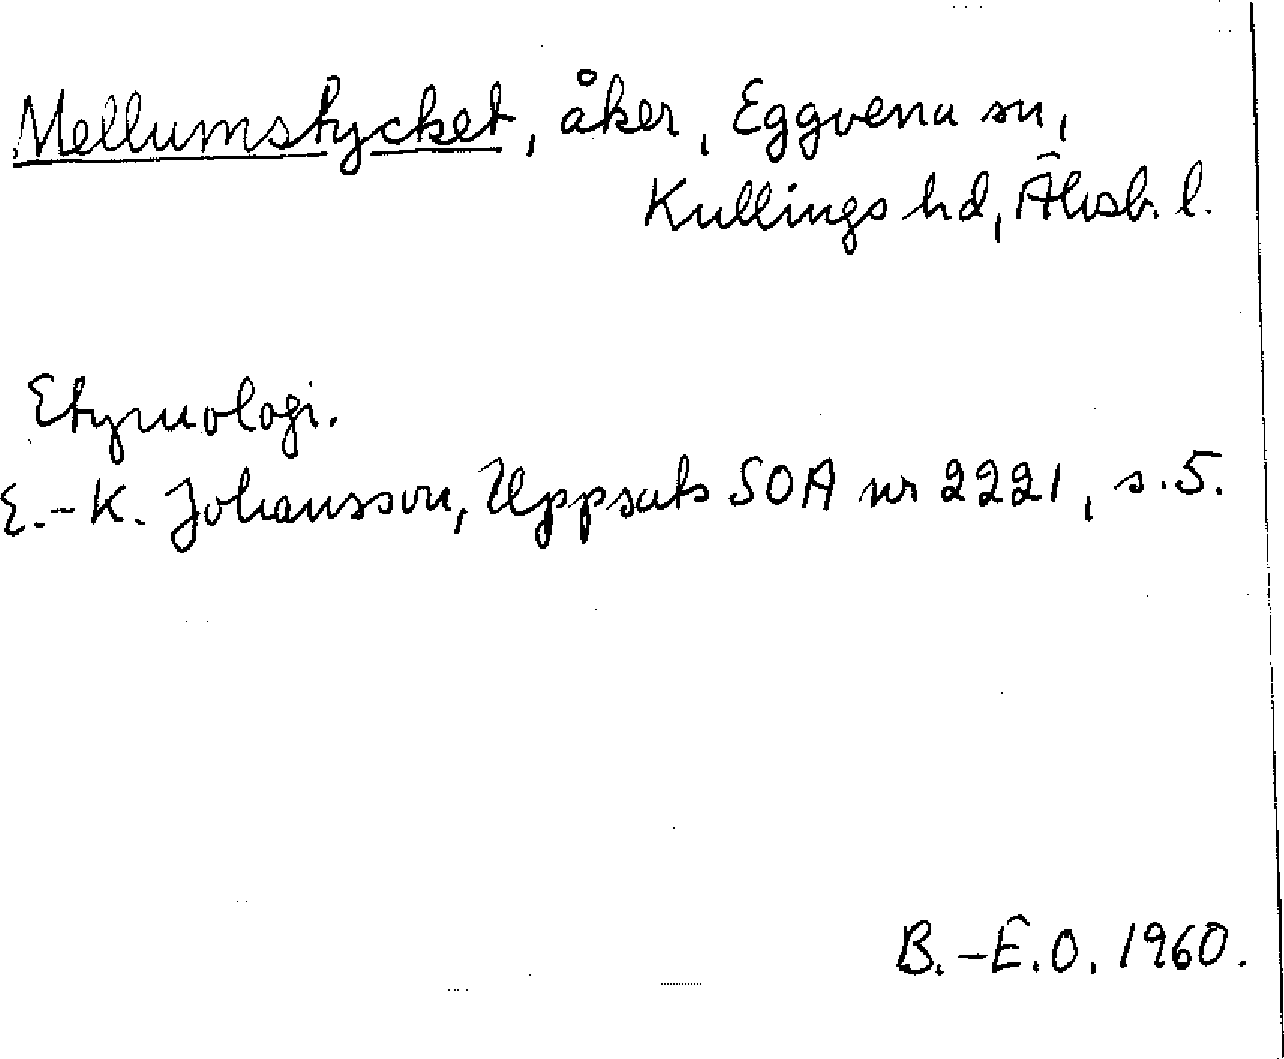 Mellumstycket, åker, Eggvena sn,
Kullings hd, Älvsb. l.
Etymologi.
E.-K. Johansson, Uppsats SOA nr 2221, s.5.
B.-E.O. 1960.